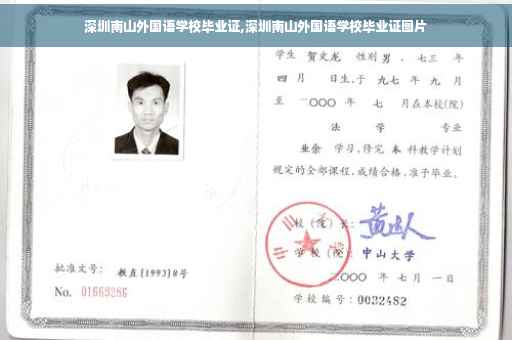 深圳南山外国语学校毕业证,深圳南山外国语学校毕业证图片
学生 贺文龙 性别 男 、七三 年
四 月 日生,于 九七 年 九 月
至 二〇〇〇 年 七 月在本校(院)
法 学 专业
业余 学习,修完 本 科教学计划
规定的全部课程,成绩合格,准予毕业。
校 (院) 长:
学 校 (院): 中山大学
批准文号: 教直[1993]8号
二〇〇〇 年 七 月 一 日
No. 01669286
学校编号: 0032482